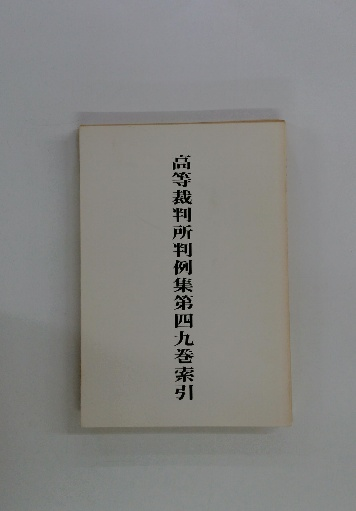 高等裁判所判例集第四九巻索引